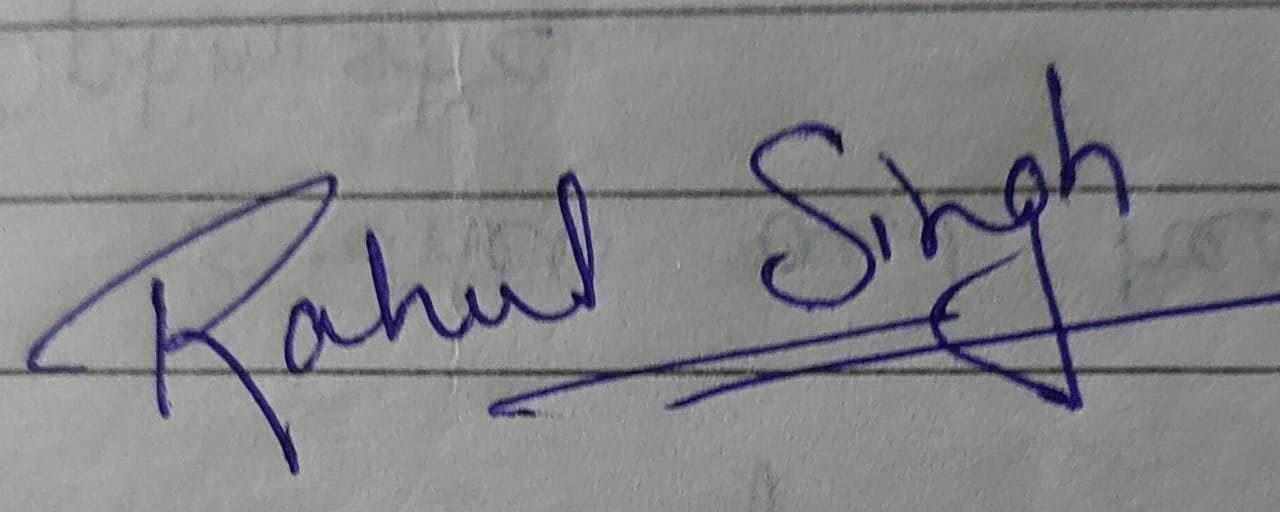 Rahul Singh